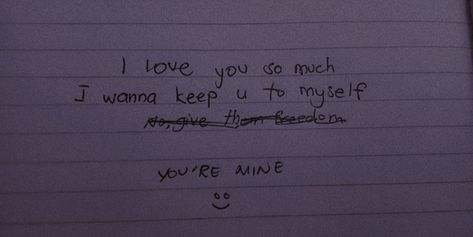 I love you so much
I wanna keep u to myself
No, give them freedom
YOU'RE MINE